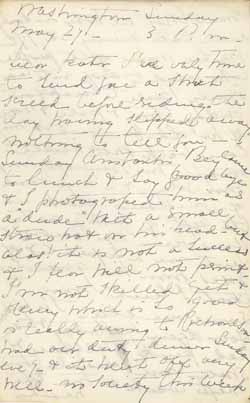 Washington Sunday
May 27 - 3 P.m.
Dear Kate I've only time
to send you a short
before riding the
day having slipped away
nothing to tell you - I
Sunday Constantin Bey came
to lunch & say good bye
& I photographed him as
a dude with a small
straw hat on his head
alas it is not a success
& I fear will not print
I'm not skilled yet &
Henry who is so good
is really owing to
had our dinner Sunday
eve'g & it went off very
well - no Society this week